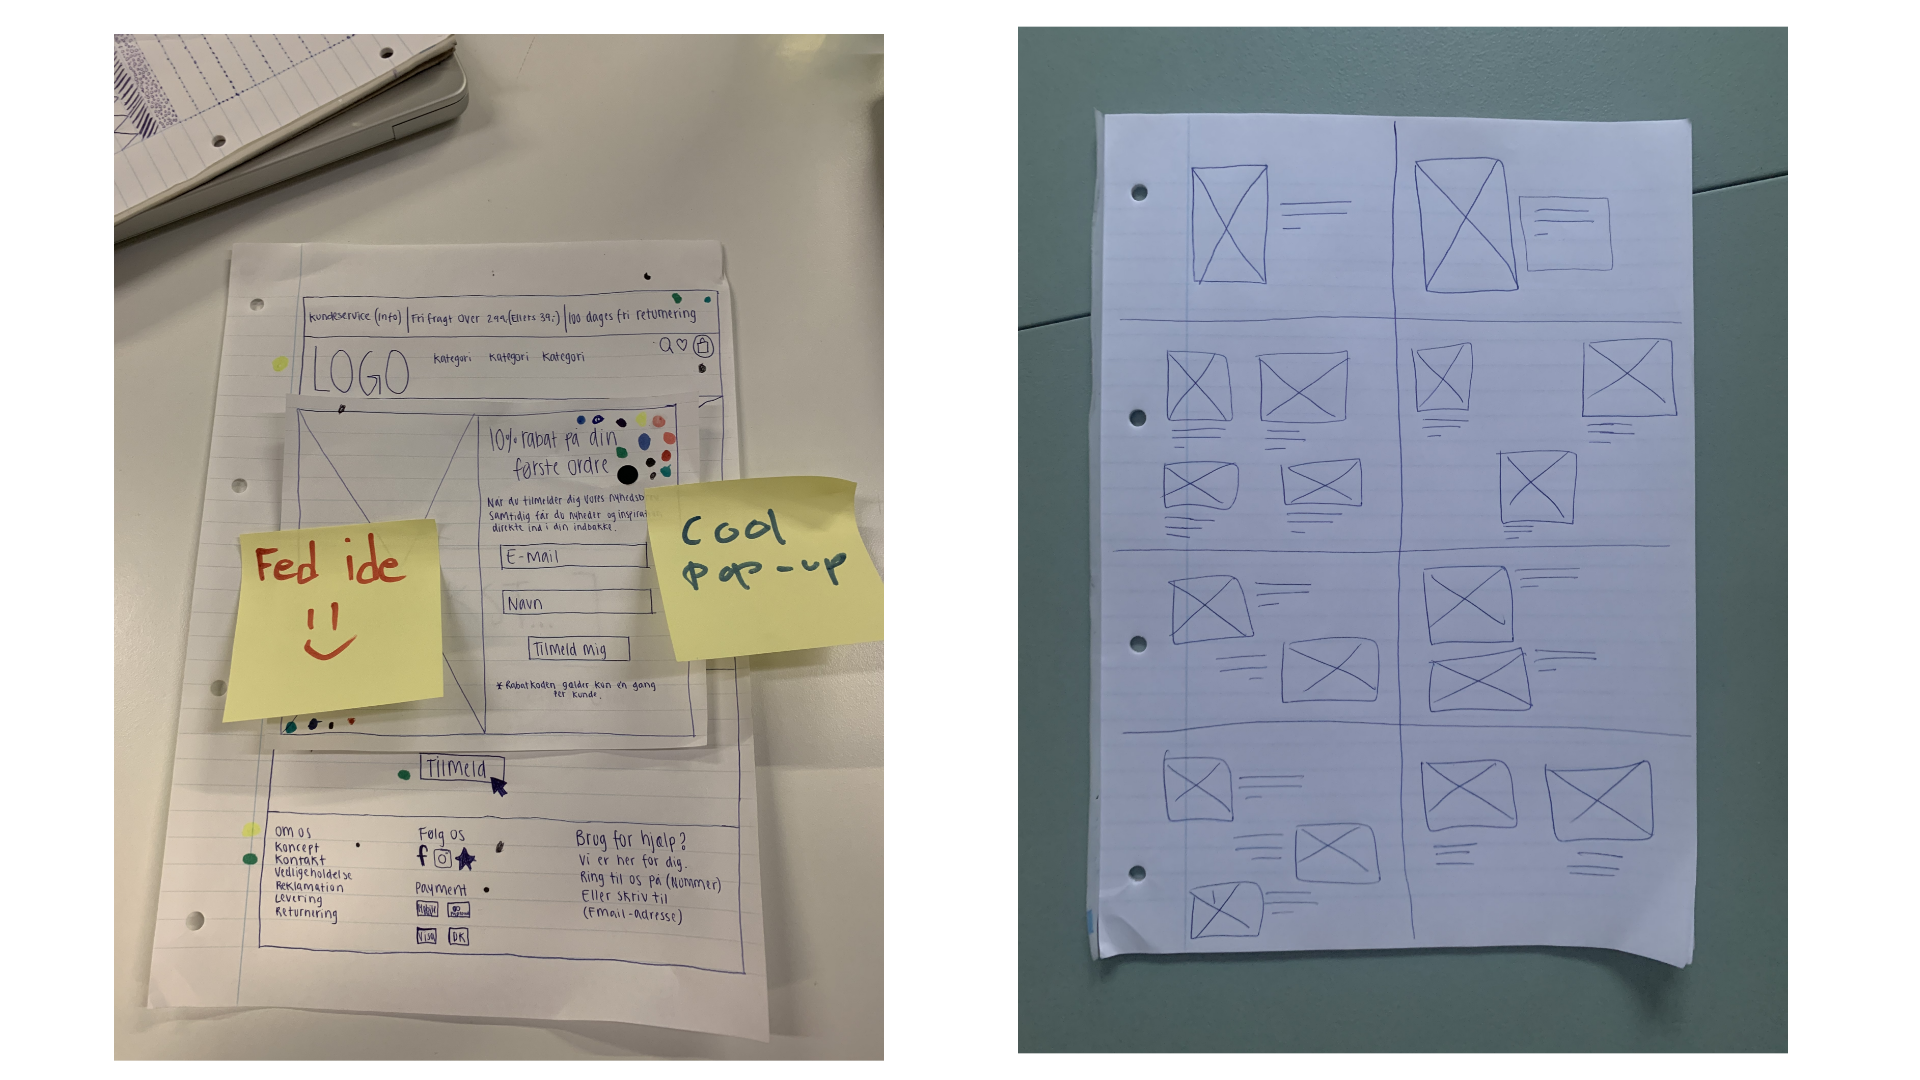 Kundeservice (Info) | Fri fragt over 299,(Ellers 39,-) | 100 dages fri returnering
LOGO
Kategori Kategori Kategori
10% rabat på din
første ordre
Når du tilmelder dig vores nyhedsb
Samtidig får du nyheder og inspirat
direkte ind i din indbakke.
E-Mail
Navn
Tilmeld mig
* Rabatkoden gælder kun en gang
Per kunde.
Fed ide
Cool
Pop-up
Tilmeld
Om os
Koncept
Kontakt
Vedligeholdelse
Reklamation
Levering
Returnering
Følg os
f
Payment
Visa DK
Brug for hjælp?
Vi er her for dig.
Ring til os på (Nummer)
Eller skriv til
(Email-adresse)